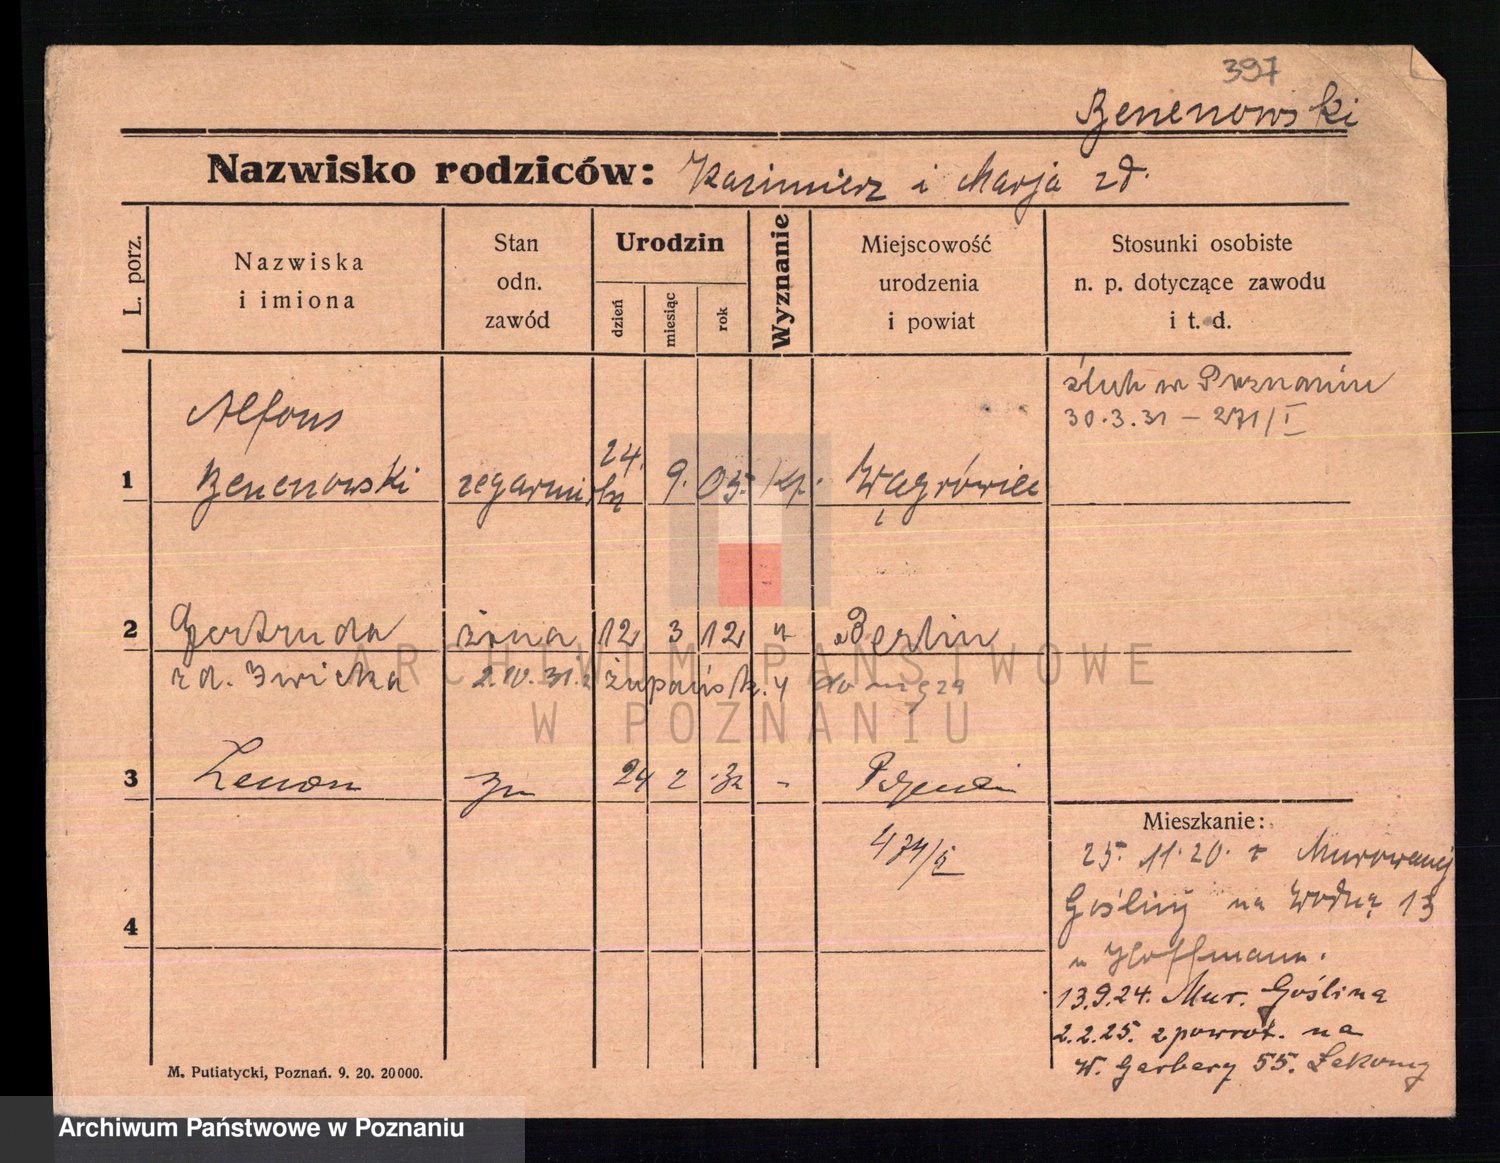 397
Benenowski
Nazwisko rodziców: Kazimierz i Marja zd.
L. porz.
Nazwiska i imiona
Stan odn. zawód
Urodzin
dzień
miesiąc
rok
Wyznanie
Miejscowość urodzenia i powiat
Stosunki osobiste n. p. dotyczące zawodu i t. d.
ślub w Poznaniu
30.3.31 – 271/I
Alfons
1 Benenowski 24. 9. 05. kt. Wągrówiec
2 Gertruda żona 12 3 12 Berlin
zd. Iwicka 2.10.31. do męża
3 Zenon 24 2 32 -
474/5
4
Mieszkanie:
25. 11. 20. z Murowanej
Gośliny na Wodną 13
u Hoffmann.
13.9.24. Mur. Goślina
2.2.25. z powrot. na
W. Garbary 55.
M. Putiatycki, Poznań. 9. 20. 20000.
ARCHIWUM PAŃSTWOWE
W POZNANIU
Archiwum Państwowe w Poznaniu